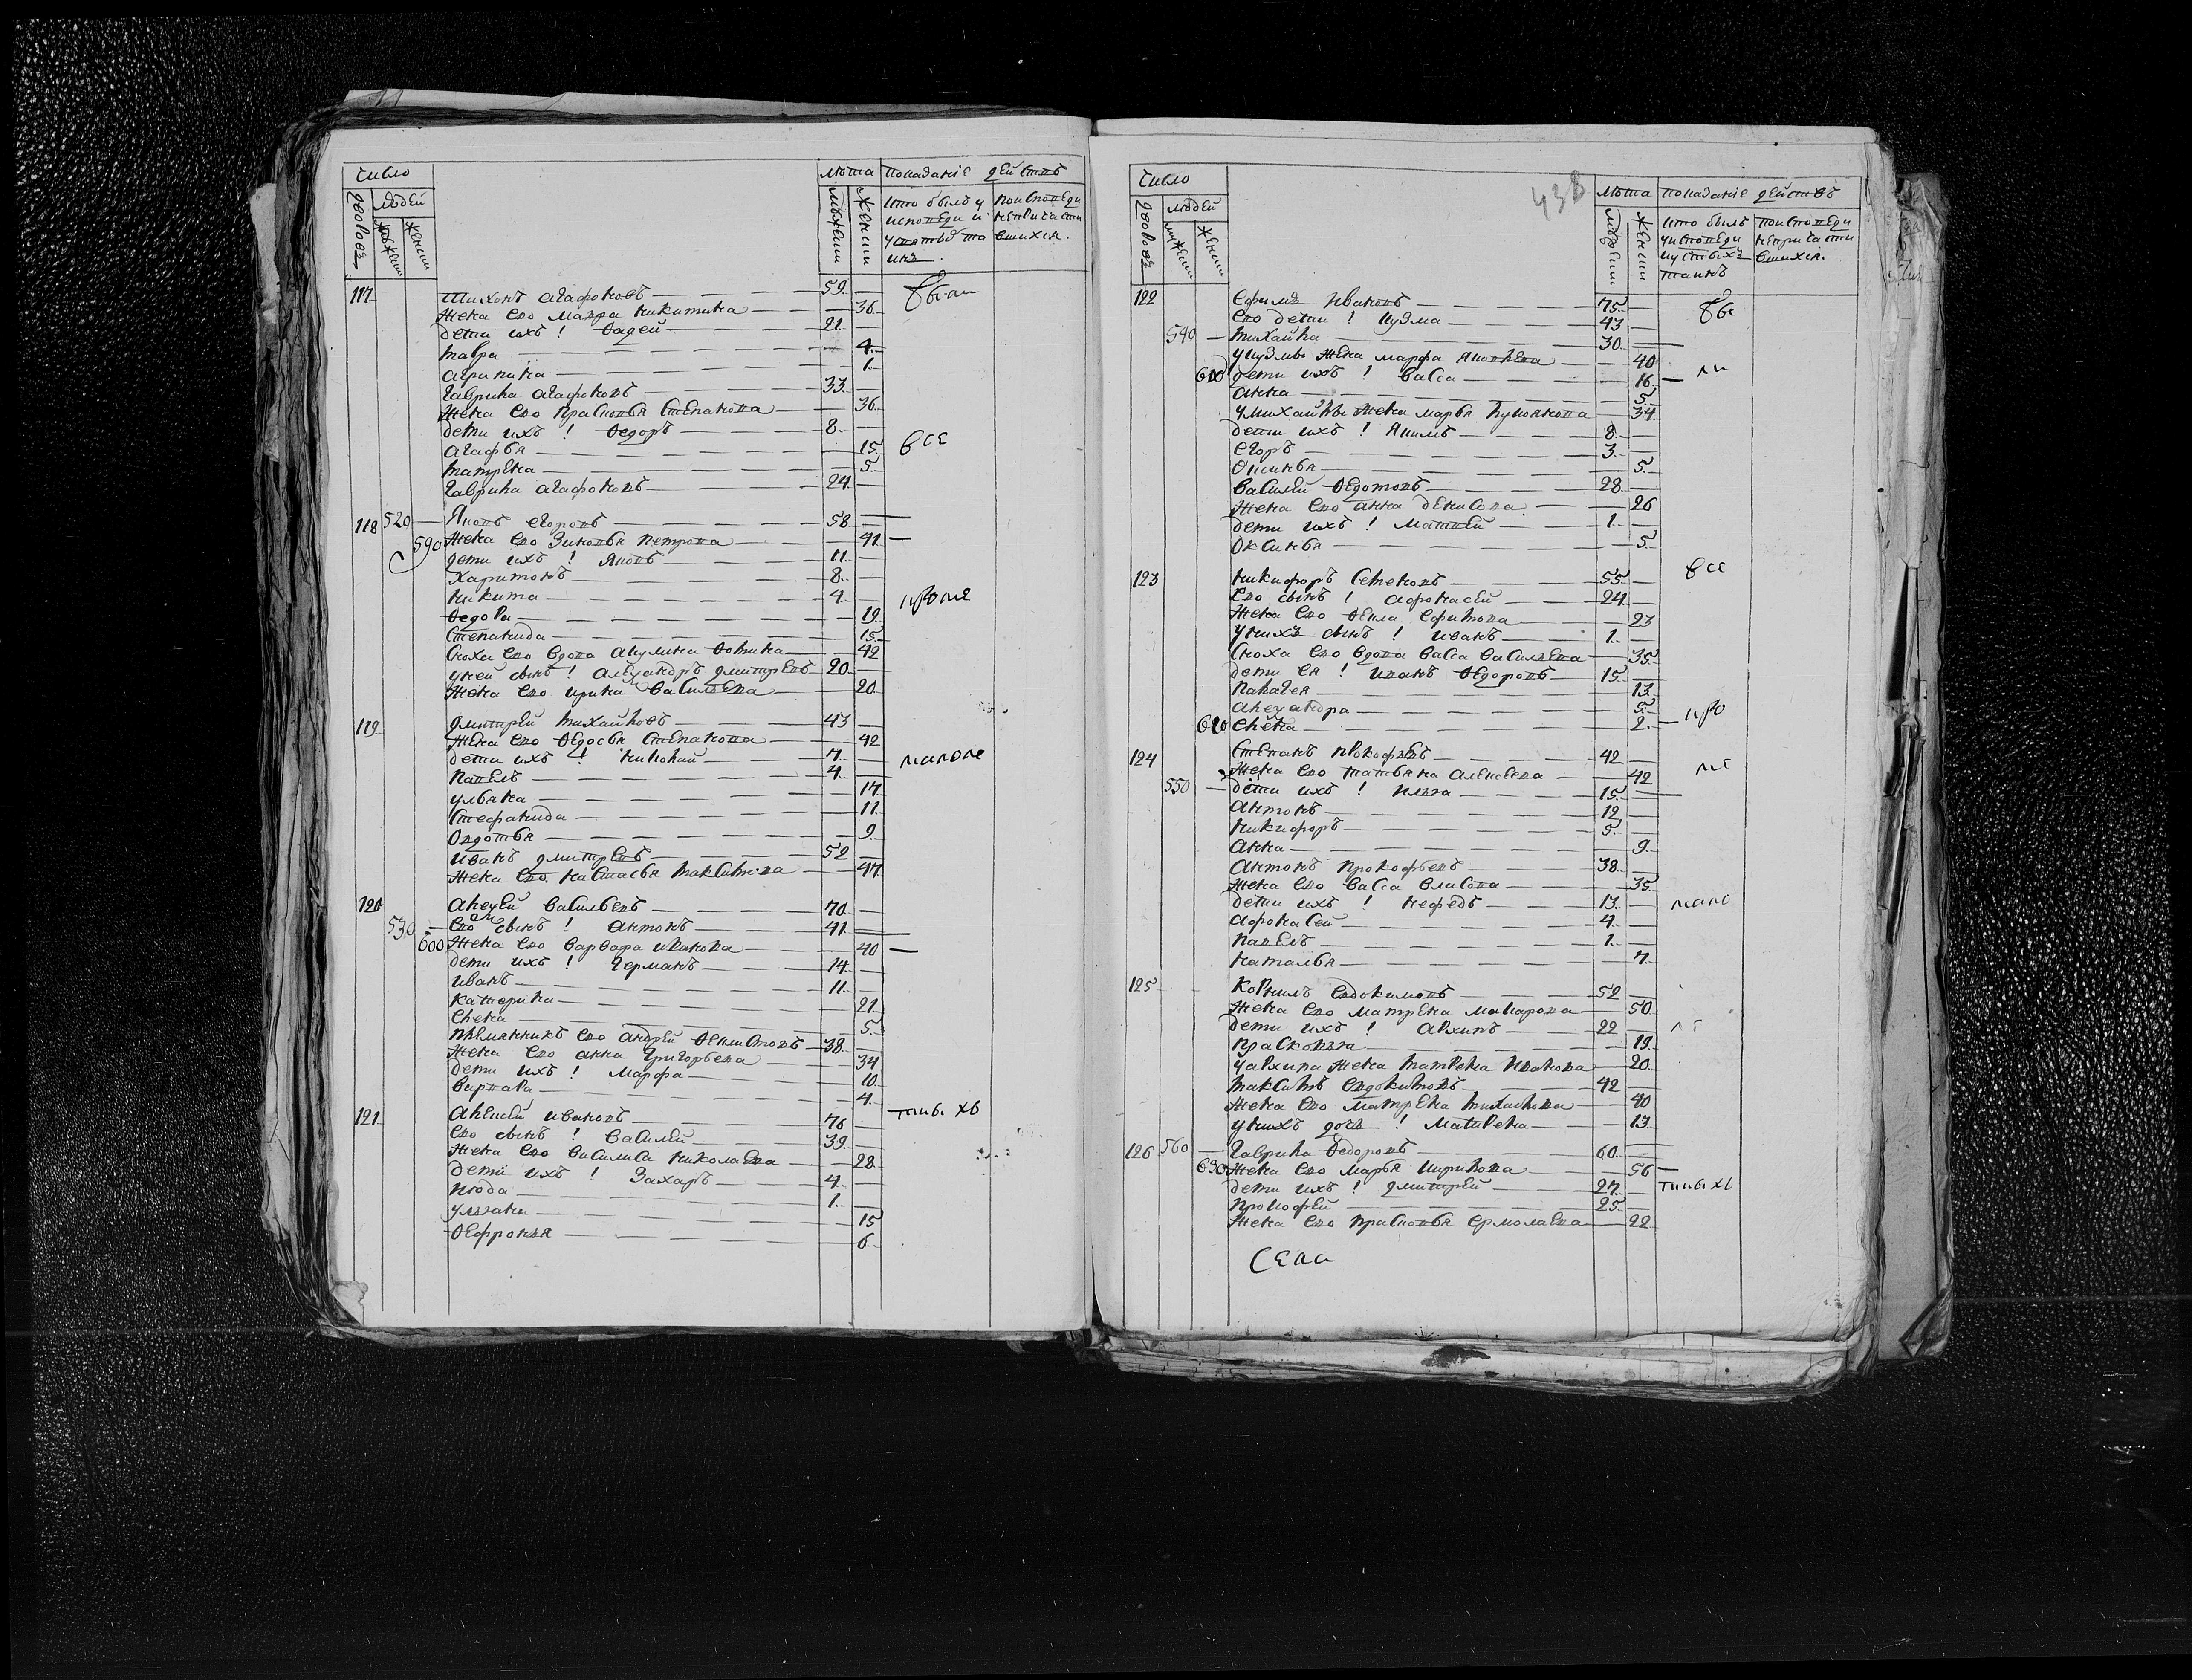 число
лѣта показаніе действъ
дворовъ
людей
мужеск
женск
мужеск
женск
кто былъ у исповеди и
у святыхъ таинъ.
поисповеди
непричасти
вшихся.
117 Тихонъ Агафоновъ 59
жена ево Мавра Никитина 36
дети ихъ ! Фадей 21
Мавра 4
Агрипина 1
Гаврила Агафоновъ 33
жена ево Прасковья Степанова 36
дети ихъ ! Федоръ 8
Агафья 15
Матрена 5
Гаврила Агафоновъ 24
118 520 Яковъ Егоровъ 58
590 жена ево Зиновья Петрова 41
дети ихъ ! Яковъ 11
Харитонъ 8
Никита 4
Федора 19
Степанида 15
сноха ево вдова Акулина Фомина 42
у ней сынъ ! Александръ Дмитревъ 20
жена ево Ирина Васильева 20
119 Дмитрей Михайловъ 43
жена ево Федосья Степанова 42
дети ихъ ! Николай 7
Павелъ 4
Ульяна 17
Стефанида 11
Овдотья 9
Иванъ Дмитревъ 52
жена ево Настасья Максимова 47
120 Алексей Васильевъ 70
530 ево сынъ ! Антонъ 41
600 жена ево Варвара Иванова 40
дети ихъ ! Германъ 14
Иванъ 11
Катерина 21
Елена 5
племянникъ ево Андрей Феклистовъ 38
жена ево Анна Григорьева 34
дети ихъ ! Марфа 10
Варвара 4
121 Алексей Ивановъ 76
ево сынъ ! Василей 39
жена ево Василиса Николаева 28
дети ихъ ! Захаръ 4
1
Ульяна 15
Фефронья 6
все
438
число
лѣта показаніе действъ
дворовъ
людей
мужеск
женск
мужеск
женск
кто былъ
у исповеди
и у святыхъ
таинъ
поисповеди
непричасти
вшихся.
122 Ефимъ Ивановъ 75
ево дети ! Кузма 43
540 Михайла 30
у Кузмы жена Марфа Яковлева 40
610 дети ихъ ! Васса 16
Анна 5
у Михайлы жена Марья Лукоянова 34
дети ихъ ! Якимъ 8
Егоръ 3
5
Василей Федотовъ 28
жена ево Анна Денисова 26
дети ихъ ! Матвей 1
Оксинья 5
123 Никифоръ Семеновъ 55
ево сынъ ! Афонасей 24
жена ево Фекла Ефимова 23
у нихъ сынъ ! Иванъ 1
сноха ево вдова Васса Васильева 35
дети ея ! Иванъ Федоровъ 15
Палагея 13
Александра 5
620 Елена 2
124 Степанъ Прокофьевъ 42
жена ево Татьяна Алексеева 42
550 дети ихъ ! Илья 15
Антонъ 12
Никифоръ 5
Анна 9
Антонъ Прокофьевъ 38
жена ево Васса Власова 35
дети ихъ ! Нефедъ 13
Афонасей 4
Павелъ 1
Наталья 7
125 Корнилъ Евдокимовъ 52
жена ево Матрена Макарова 50
дети ихъ ! Архипъ 22
Прасковья 19
у Архипа жена Матрена Иванова 20
Максимъ Евдокимовъ 42
жена ево Матрена Михайлова 40
у нихъ дочь ! Матрена 13
126 560 Гаврила Федоровъ 60
630 жена ево Марья Кирилова 56
дети ихъ ! Дмитрей 27
Прокофей 25
жена ево Прасковья Ермолаева 22
все
села